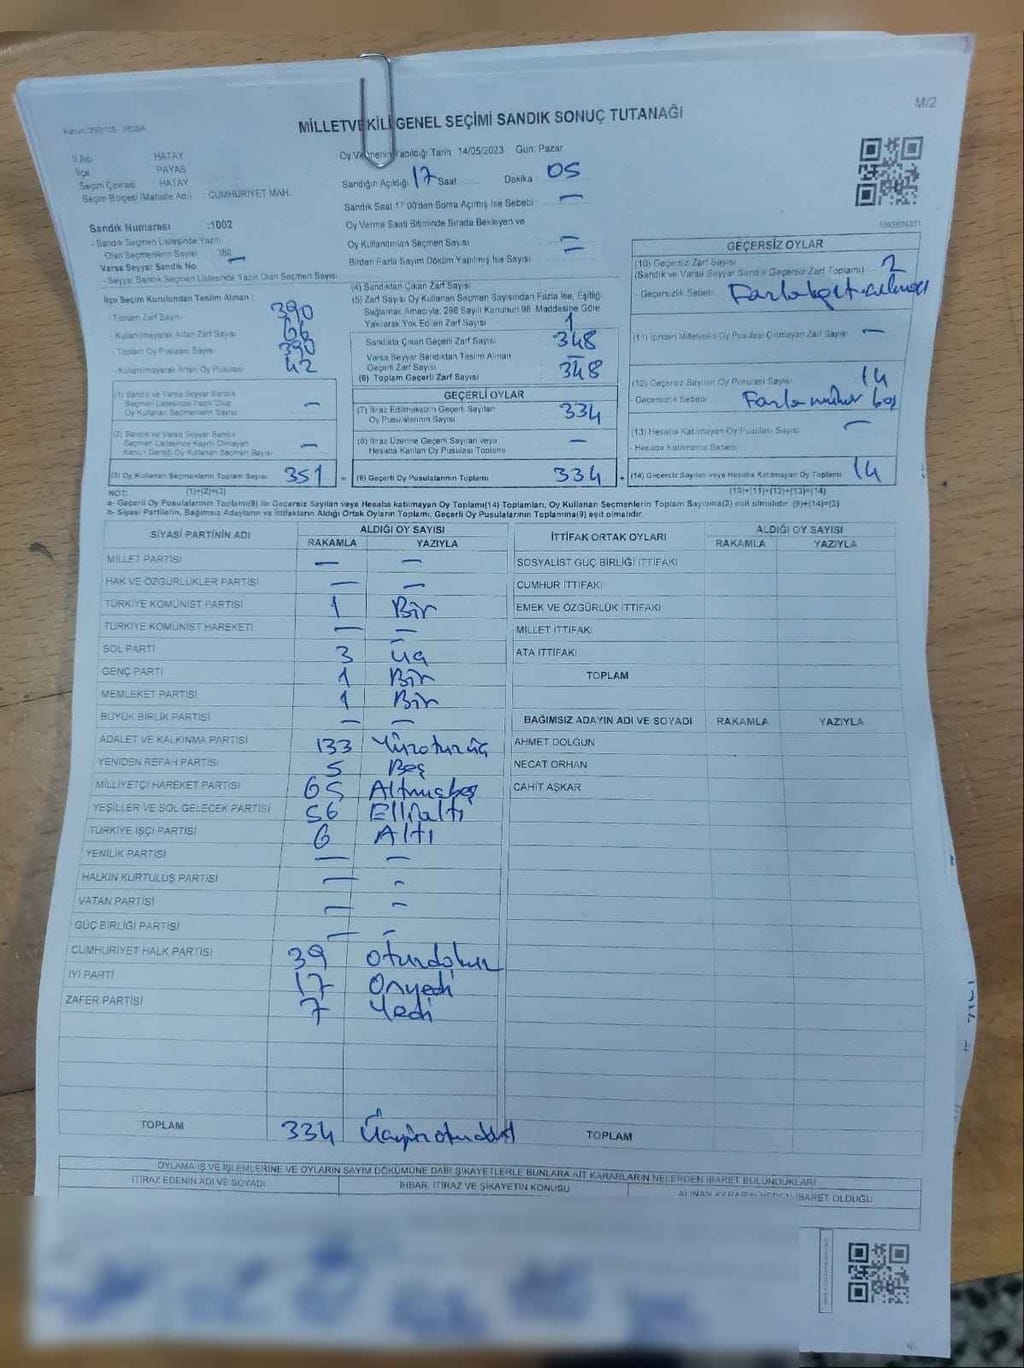 M/2
MİLLETVEKİLİ GENEL SEÇİMİ SANDIK SONUÇ TUTANAĞI
İl Adı HATAY
İlçe PAYAS
Seçim Çevresi HATAY
Seçim Bölgesi (Mahalle Adı) : CUMHURİYET MAH.
Sandık Numarası :1002
- Sandık Seçmen Listesinde Yazılı
Olan Seçmenlerin Sayısı
Varsa Seyyar Sandık No —
- Seyyar Sandık Seçmen Listesinde Yazılı Olan Seçmen Sayısı:
Oy Vermenin Yapıldığı Tarih 14/05/2023 Gün: Pazar
Sandığın Açıldığı 17 Saat Dakika 05
Sandık Saat 17:00'den Sonra Açılmış İse Sebebi : —
Oy Verme Saati Bitiminde Sırada Bekleyen ve
Oy Kullandırılan Seçmen Sayısı —
Birden Fazla Sayım Döküm Yapılmış İse Sayısı —
İlçe Seçim Kurulundan Teslim Alınan :
- Toplam Zarf Sayısı 390
- Kullanılmayarak Artan Zarf Sayısı
- Toplam Oy Pusulası Sayısı 390
- Kullanılmayarak Artan Oy Pusulası 42
(1) Sandık ve Varsa Seyyar Sandık
Seçmen Listesinde Yazılı Olup
Oy Kullanan Seçmenlerin Sayısı —
(2) Sandık ve Varsa Seyyar Sandık
Seçmen Listesinde Kayıtlı Olmayan
Kanun Gereği Oy Kullanan Seçmen Sayısı —
(3) Oy Kullanan Seçmenlerin Toplam Sayısı 351
(1)+(2)=(3)
(4) Sandıktan Çıkan Zarf Sayısı
(5) Zarf Sayısı Oy Kullanan Seçmen Sayısından Fazla İse, Eşitliği
Sağlamak Amacıyla; 298 Sayılı Kanunun 98. Maddesine Göre
Yakılarak Yok Edilen Zarf Sayısı 1
Sandıkta Çıkan Geçerli Zarf Sayısı 348
Varsa Seyyar Sandıktan Teslim Alınan
Geçerli Zarf Sayısı —
(6) Toplam Geçerli Zarf Sayısı 348
GEÇERLİ OYLAR
(7) İtiraz Edilmeksizin Geçerli Sayılan
Oy Pusulalarının Sayısı 334
(8) İtiraz Üzerine Geçerli Sayılan veya
Hesaba Katılan Oy Pusulaları Toplamı —
(9) Geçerli Oy Pusulalarının Toplamı 334
GEÇERSİZ OYLAR
(10) Geçersiz Zarf Sayısı
(Sandık ve Varsa Seyyar Sandık Geçersiz Zarf Toplamı) 2
- Geçersizlik Sebebi
(11) İçinden Milletvekili Oy Pusulası Çıkmayan Zarf Sayısı —
(12) Geçersiz Sayılan Oy Pusulası Sayısı 14
- Geçersizlik Sebebi Fazla mühür boş
(13) Hesaba Katılmayan Oy Pusulası Sayısı —
- Hesaba Katılmama Sebebi
(14) Geçersiz Sayılan veya Hesaba Katılmayan Oy Toplamı 14
(10)+(11)+(12)+(13)=(14)
NOT:
a- Geçerli Oy Pusulalarının Toplamı(9) ile Geçersiz Sayılan veya Hesaba katılmayan Oy Toplamı(14) Toplamları, Oy Kullanan Seçmenlerin Toplam Sayısına(3) eşit olmalıdır. (9)+(14)=(3)
b- Siyasi Partilerin, Bağımsız Adayların ve İttifakların Aldığı Ortak Oyların Toplamı, Geçerli Oy Pusulalarının Toplamına(9) eşit olmalıdır.
SİYASİ PARTİNİN ADI ALDIĞI OY SAYISI
RAKAMLA YAZIYLA
MİLLET PARTİSİ — —
HAK VE ÖZGÜRLÜKLER PARTİSİ — —
TÜRKİYE KOMÜNİST PARTİSİ 1 Bir
TÜRKİYE KOMÜNİST HAREKETİ — —
SOL PARTİ 3 Üç
GENÇ PARTİ 1 Bir
MEMLEKET PARTİSİ 1 Bir
BÜYÜK BİRLİK PARTİSİ — —
ADALET VE KALKINMA PARTİSİ 133 Yüzotuzüç
YENİDEN REFAH PARTİSİ 5 Beş
MİLLİYETÇİ HAREKET PARTİSİ 65 Altmışbeş
YEŞİLLER VE SOL GELECEK PARTİSİ 56 Ellialtı
TÜRKİYE İŞÇİ PARTİSİ 6 Altı
YENİLİK PARTİSİ — —
HALKIN KURTULUŞ PARTİSİ — —
VATAN PARTİSİ — —
GÜÇ BİRLİĞİ PARTİSİ — —
CUMHURİYET HALK PARTİSİ 39 Otuzdokuz
İYİ PARTİ 17 Onyedi
ZAFER PARTİSİ 7 Yedi
TOPLAM 334 Üçyüzotuzdört
İTTİFAK ORTAK OYLARI ALDIĞI OY SAYISI
RAKAMLA YAZIYLA
SOSYALİST GÜÇ BİRLİĞİ İTTİFAKI
CUMHUR İTTİFAKI
EMEK VE ÖZGÜRLÜK İTTİFAKI
MİLLET İTTİFAKI
ATA İTTİFAKI
TOPLAM
BAĞIMSIZ ADAYIN ADI VE SOYADI RAKAMLA YAZIYLA
AHMET DOLGUN
NECAT ORHAN
CAHİT AŞKAR
TOPLAM
OYLAMA İŞ VE İŞLEMLERİNE VE OYLARIN SAYIM DÖKÜMÜNE DAİR ŞİKAYETLERLE BUNLARA AİT KARARLARIN NELERDEN İBARET BULUNDUKLARI
İTİRAZ EDENİN ADI VE SOYADI
İHBAR, İTİRAZ VE ŞİKAYETİN KONUSU
ALINAN KARARIN NEDEN İBARET OLDUĞU